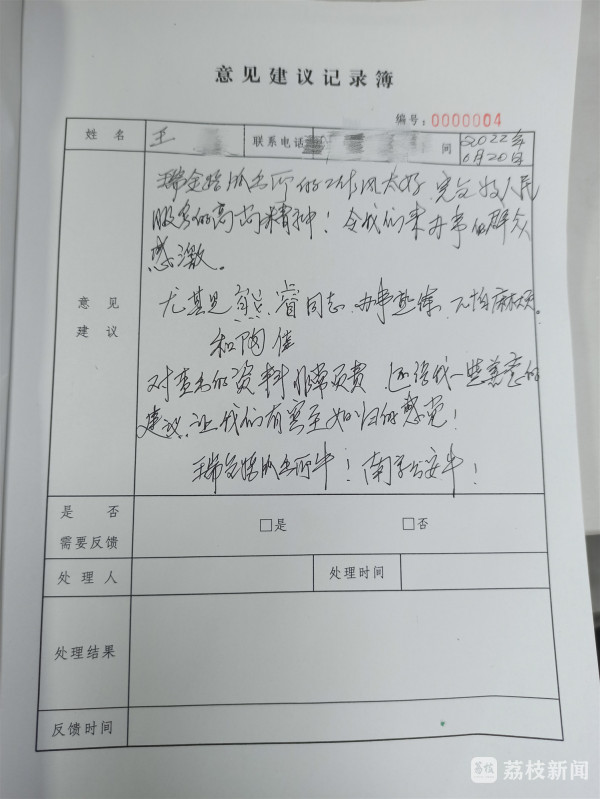 意见建议记录簿
编号：0000004
姓名 王 联系电话 间 2022年6月20日
瑞金路派出所的工作风太好，完全被人民
服务的高尚精神！令我们来办事的群众
感激。
意见
建议
尤其是熊睿同志，办事熟练，不怕麻烦。
和陶佳
对查出的资料非常负责，还给我一些善意的
建议，让我们有宾至如归的感觉！
瑞金路派出所牛！南京公安牛！
是否
需要反馈
□是 □否
处理人 处理时间
处理结果
反馈时间
荔枝新闻